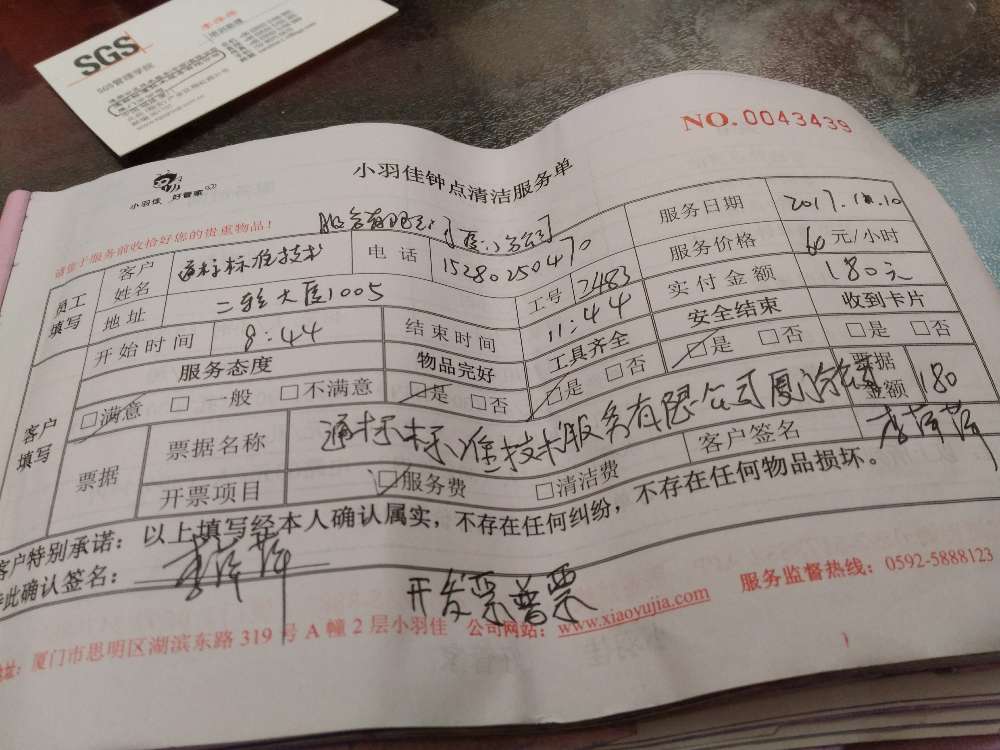 SGS
SGS管理学院
NO. 0043439
小羽佳钟点清洁服务单
小羽佳 好管家
请您于服务前收拾好您的贵重物品!
服务有限公司[厦门分公司]
员工填写 客户姓名 通标标准技术 电话 15280250470 服务日期
地址 二轻大厦1005 工号 2483 服务价格 60 元/小时
开始时间 8:44 结束时间 11:44 实付金额 180元
客户填写 服务态度 物品完好 工具齐全 安全结束 收到卡片
□满意 □ 一般 □不满意 □是 □否 □是 □否 □是 □否 □是 □否
票据 票据名称 通标标准技术服务有限公司厦门 票据金额 180
开票项目 □服务费 □清洁费 客户签名
客户特别承诺:以上填写经本人确认属实,不存在任何纠纷,不存在任何物品损坏。
特此确认签名:
开发票普票
服务监督热线:0592-5888123
地址:厦门市思明区湖滨东路 319 号 A 幢 2 层小羽佳 公司网站:www.xiaoyujia.com